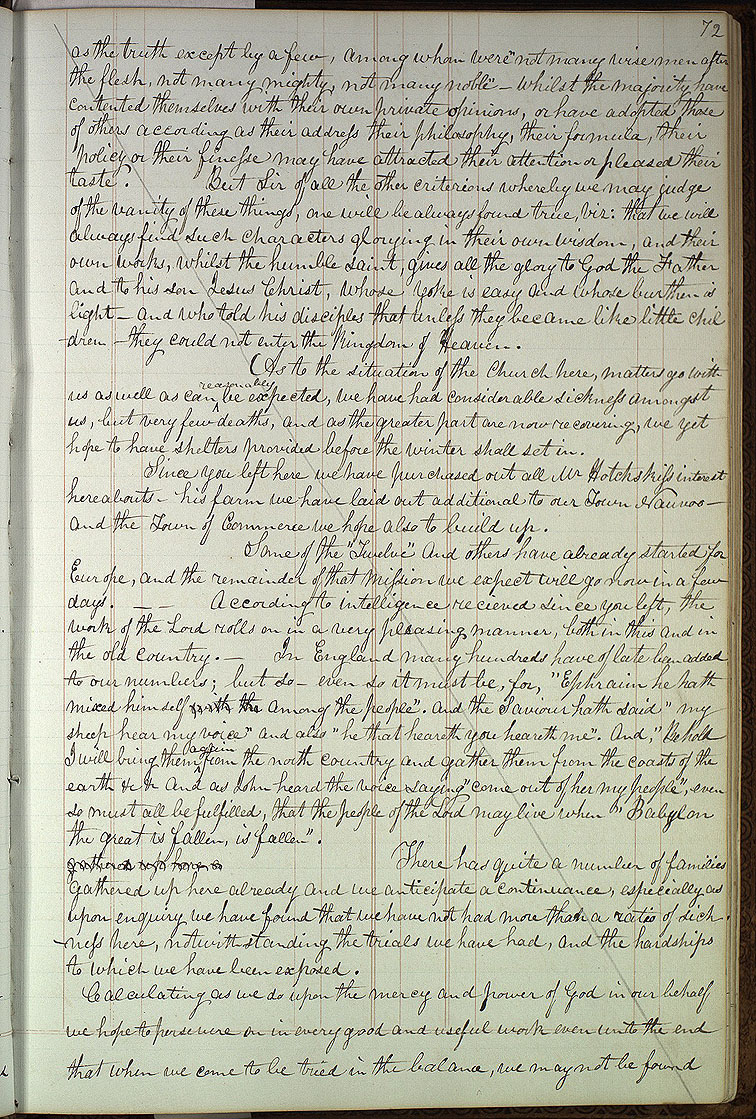 72
as the truth except by a few, among whom were "not many wise men after
the flesh, not many mighty, not many noble" — whilst the majority have
contented themselves with their own private opinions, or have adopted those
of others according as their address their philosophy, their formula, their
policy or their finesse may have attracted their attention or pleased their
taste. But Sir of all the other criterions whereby we may judge
of the vanity of these things, one will be always found true, viz: that we will
always find such characters glorying in their own wisdom, and their
own works, whilst the humble saint, gives all the glory to God the Father
and to his son Jesus Christ, whose yoke is easy and whose burthen is
light — and who told his disciples that unless they became like little chil
-dren — they could not enter the Kingdom of Heaven.
(As to the situation of the Church here, matters go with
us as well as can reasonably be expected, we have had considerable sickness amongst
us, but very few deaths, and as the greater part are now recovering, we yet
hope to have shelters provided before the winter shall set in.
Since you left here we have purchased out all Mr Hotchskiss interest
hereabouts — his farm we have laid out additional to our Town Nauvoo —
and the Town of Commerce we hope also to build up.
Some of the "Twelve" and others have already started for
Europe, and the remainder of that mission we expect will go now in a few
days. — — According to intelligence recieved since you left, the
work of the Lord rolls on in a very pleasing manner, both in this and in
the old country. — In England many hundreds have of late been added
to our numbers; but so — even so it must be, for, "Ephraim he hath
mixed himself with the among the people". And the Saviour hath said "my
sheep hear my voice" and also "he that heareth you heareth me". And, "Behold
I will bring them again from the north country and gather them from the coasts of the
earth &c &c And as John heard the voice saying "come out of her my people", even
so must all be fulfilled, that the people of the Lord may live when "Babylon
the great is fallen, is fallen".
There has quite a number of families
gathered up here already and we anticipate a continuance, especially as
upon enquiry we have found that we have not had more than a ratio of sick
-ness here, notwithstanding the trials we have had, and the hardships
to which we have been exposed.
Calculating as we do upon the mercy and power of God in our behalf
we hope to persevere on in every good and useful work even unto the end
that when we come to be tried in the balance, we may not be found